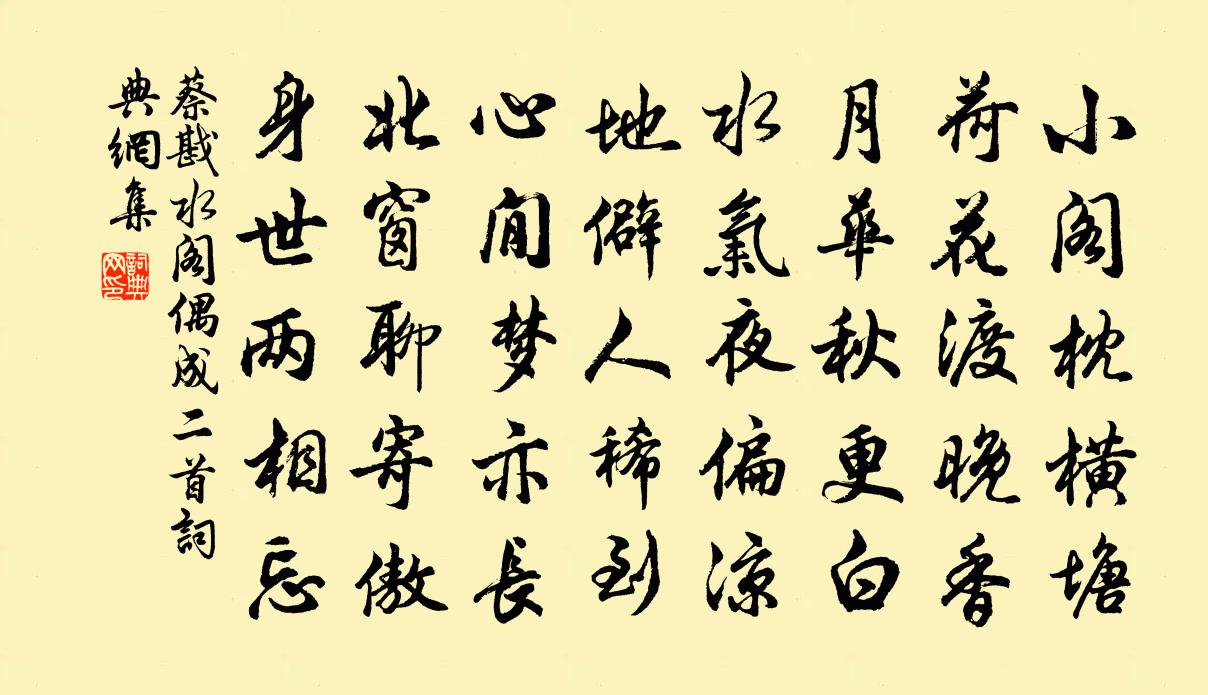 小阁枕横塘
荷花渡晚香
月華秋更白
水氣夜偏凉
地僻人稀到
心闲梦亦長
北窗聊寄傲
身世两相忘
蔡戡水阁偶成二首詞
典網集
詞典网印